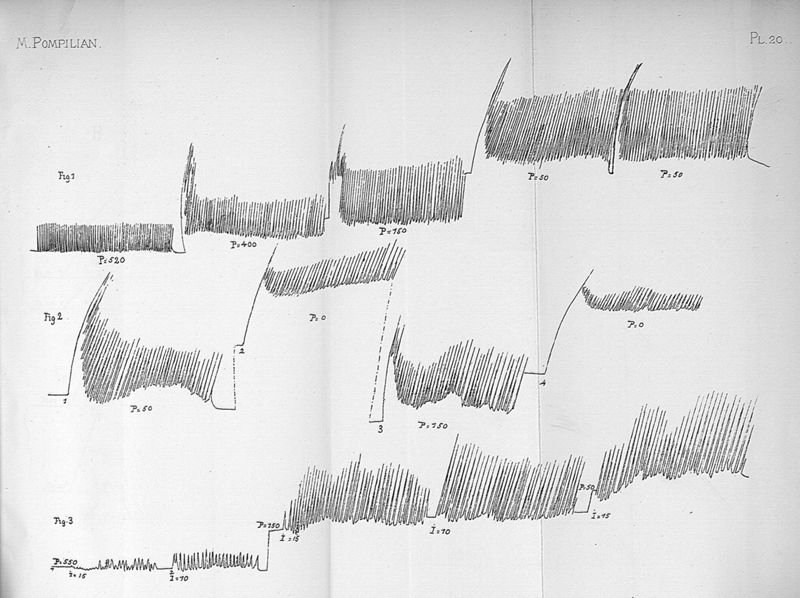 M. POMPILIAN.
PL. 20.
Fig 1
P=520
P=400
P=150
P=50
P=50
Fig 2
1
P=50
2
P=0
3
P=150
4
P=0
Fig 3
P=550
1
I=15
2
I=10
P=150
I=15
I=10
P=50
I=15